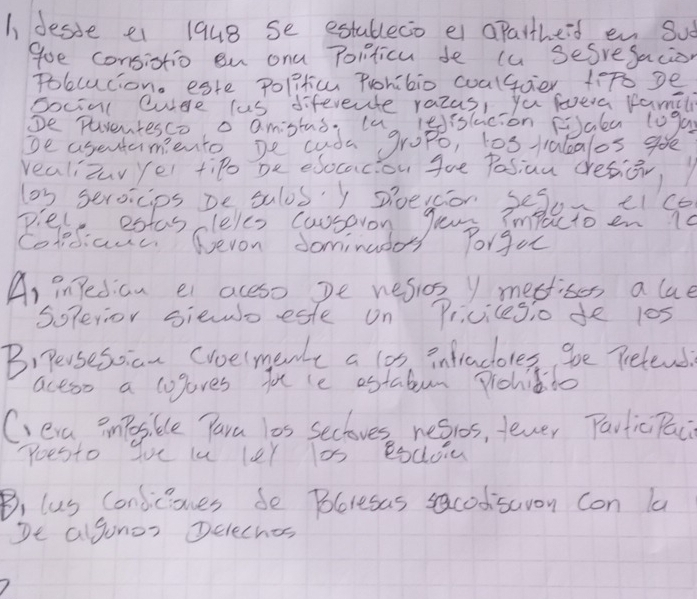 1, desde el 1948 se establecio el apartheid en Sud
que consistio en ona Politica de la Segregacion
Poblacion. este Politica Prohibio cualquier tiPo De
Social entre las diferente razas, ya fuera Famili
De Parentesco o amistad. la legislacion Fijaba luga
De asentamiento De cada gruPo, los trabalos que
realizar yel tiPo De edocacion que Podian recibir, y
los servicios De salud. y Divercion segun el co
Piel. estas leles causaron gran impacto en lo
Cotidiana fueron dominados Porque
A, inpedian el aceso De negros y mestisos a la e
SuPerior siendo este un Privilegio de los
B, Perseguian Cruelmente a los infractores que Pretendi
aceso a lugares que le estaban Prohibido
C, era imPosible Para los sectores negros, tener ParticiPaci
Puesto que la ley los Escluia
D, las condiciones de Pobresas se acodisaron con la
De algunos Derechos